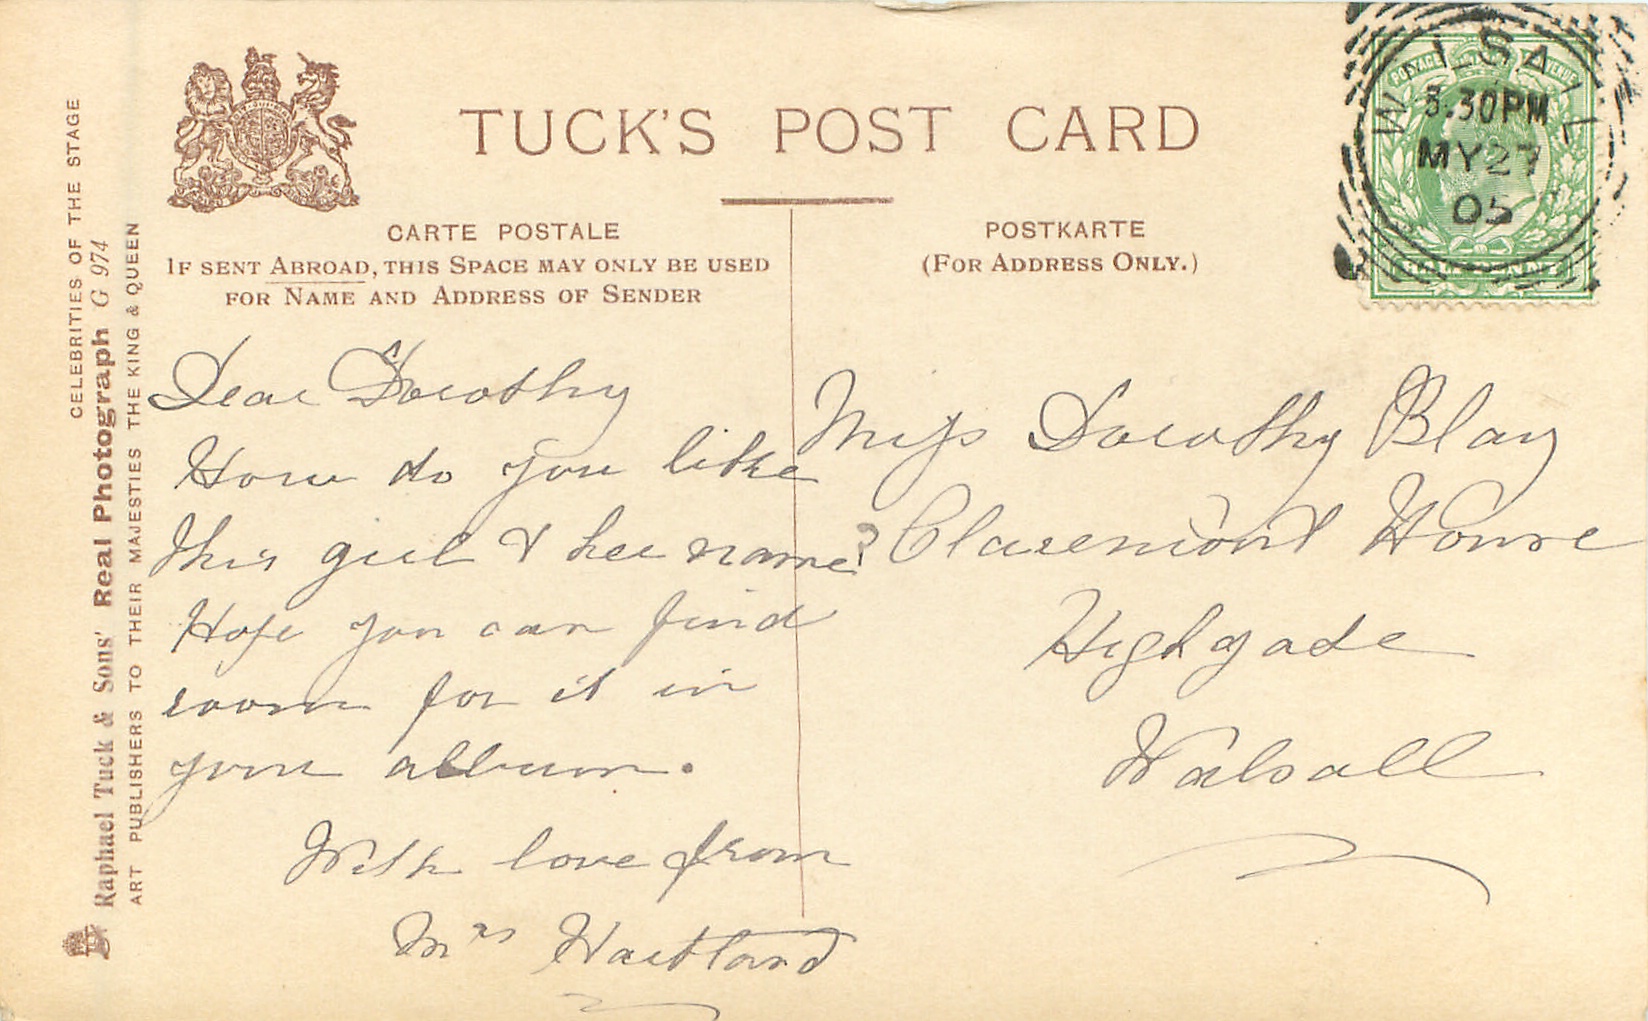 TUCK'S POST CARD
CARTE POSTALE
IF SENT ABROAD, THIS SPACE MAY ONLY BE USED
FOR NAME AND ADDRESS OF SENDER
POSTKARTE
(FOR ADDRESS ONLY.)
WALSALL
3.30PM
MY27
05
POSTAGE REVENUE
HALFPENNY
CELEBRITIES OF THE STAGE
Raphael Tuck & Sons' Real Photograph G 974
ART PUBLISHERS TO THEIR MAJESTIES THE KING & QUEEN
Dear Dorothy
How do you like
this girl & her name?
Hope you can find
room for it in
your album.
With love from
Mrs Hartland
Miss Dorothy Blay
Claremont House
Highgate
Walsall